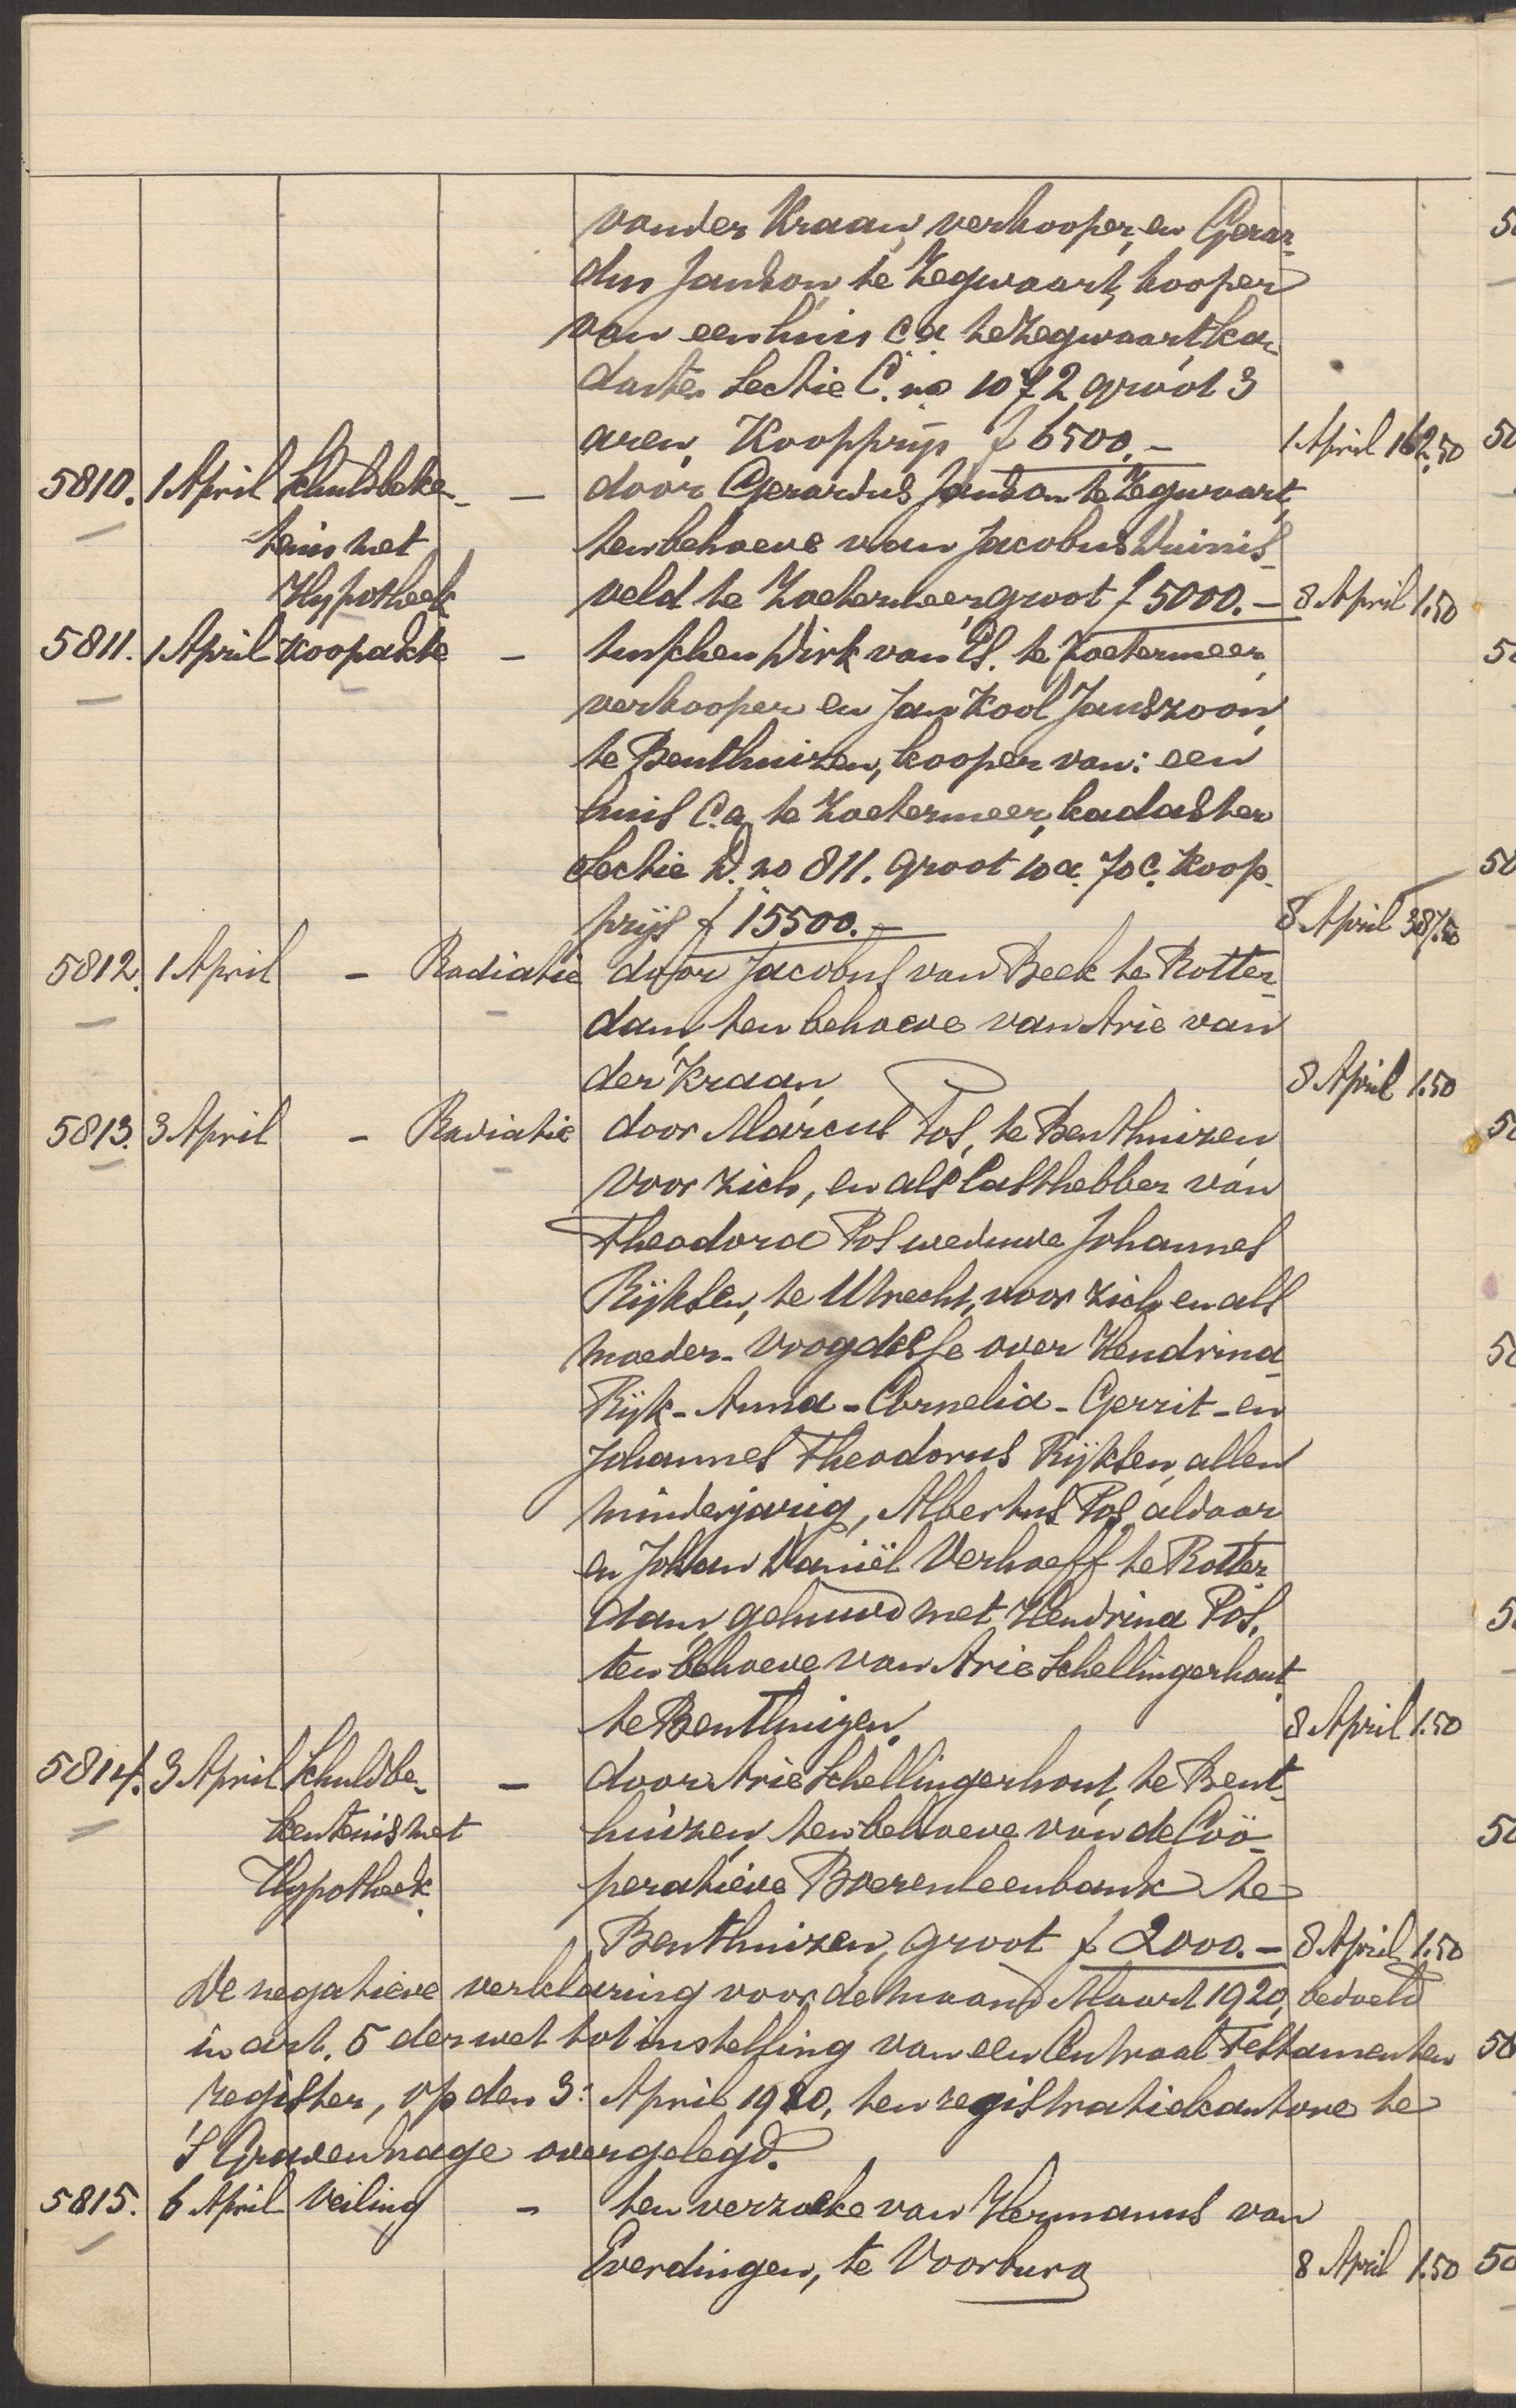 van der Kraan, verkooper, en Gerar-
dus Janson te Zegwaart, kooper
van een huis c.a. te Zegwaart, ka-
daster Sectie C. no 1072 groot 3
aren, Koopprijs f 6500.- 1 April 162.50
5810. 1 April Schuldbeke- - door Gerardus Janson te Zegwaart,
tenis met ten behoeve van Jacobus Duinis-
Hypotheek veld te Zoetermeer, groot f 5000.- 8 April 1.50
5811. 1 April Koopakte - tusschen Dirk van Es. te Zoetermeer,
verkooper en Jan Kool Janszoon,
te Benthuizen, kooper van: een
huis c.a. te Zoetermeer, kadaster
Sectie D. no 811. groot 10 a. 70 c. Koop-
prijs f 15500.- 8 April 387.50
5812. 1 April - Radiatie door Jacobus van Beek te Rotter-
dam, ten behoeve van Arie van
der Kraan, 8 April 1.50
5813. 3 April - Radiatie door Marcus Pos, te Benthuizen,
voor zich, en als lasthebber van
Theodora Pos weduwe Johannes
Rijksen, te Utrecht, voor zich en als
moeder-voogdesse over Hendrina-
Rijk-Anna-Cornelia-Gerrit-en
Johannes Theodorus Rijksen, allen
minderjarig, Albertus Pos, aldaar
en Johan Daniël Verhoeff te Rotter-
dam, gehuwd met Hendrina Pos,
ten behoeve van Arie Schellingerhout
te Benthuizen. 8 April 1.50
5814. 3 April Schuldbe- - door Arie Schellingerhout, te Bent-
kentenis met huizen, ten behoeve van de Coö-
Hypotheek. peratieve Boerenleenbank te
Benthuizen, groot f 2000.- 8 April 1.50
De negatieve verklaring voor de maand Maart 1920, bedoeld
in art. 5 der wet tot instelling van een Centraal Testamenten
register, op den 3: April 1920, ten registratiekantore te
'S Gravenhage overgelegd.
5815. 6 April Veiling - ten verzoeke van Hermanus van
Everdingen, te Voorburg 8 April 1.50